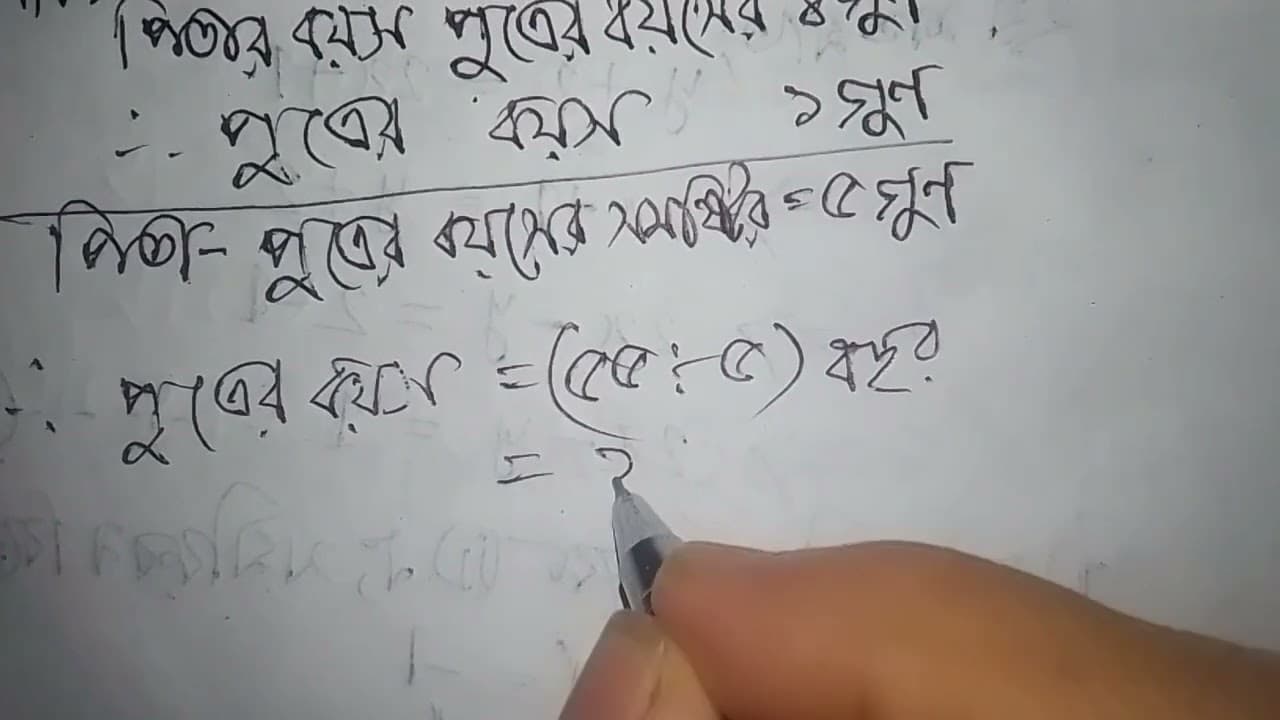 পিতার বয়স পুত্রের বয়সের ৪ গুণ
∴ পুত্রের বয়স ১ গুণ
পিতা- পুত্রের বয়সের সমষ্টির = ৫ গুণ
∴ পুত্রের বয়স = (৫৫ ÷ ৫) বছর
= ১